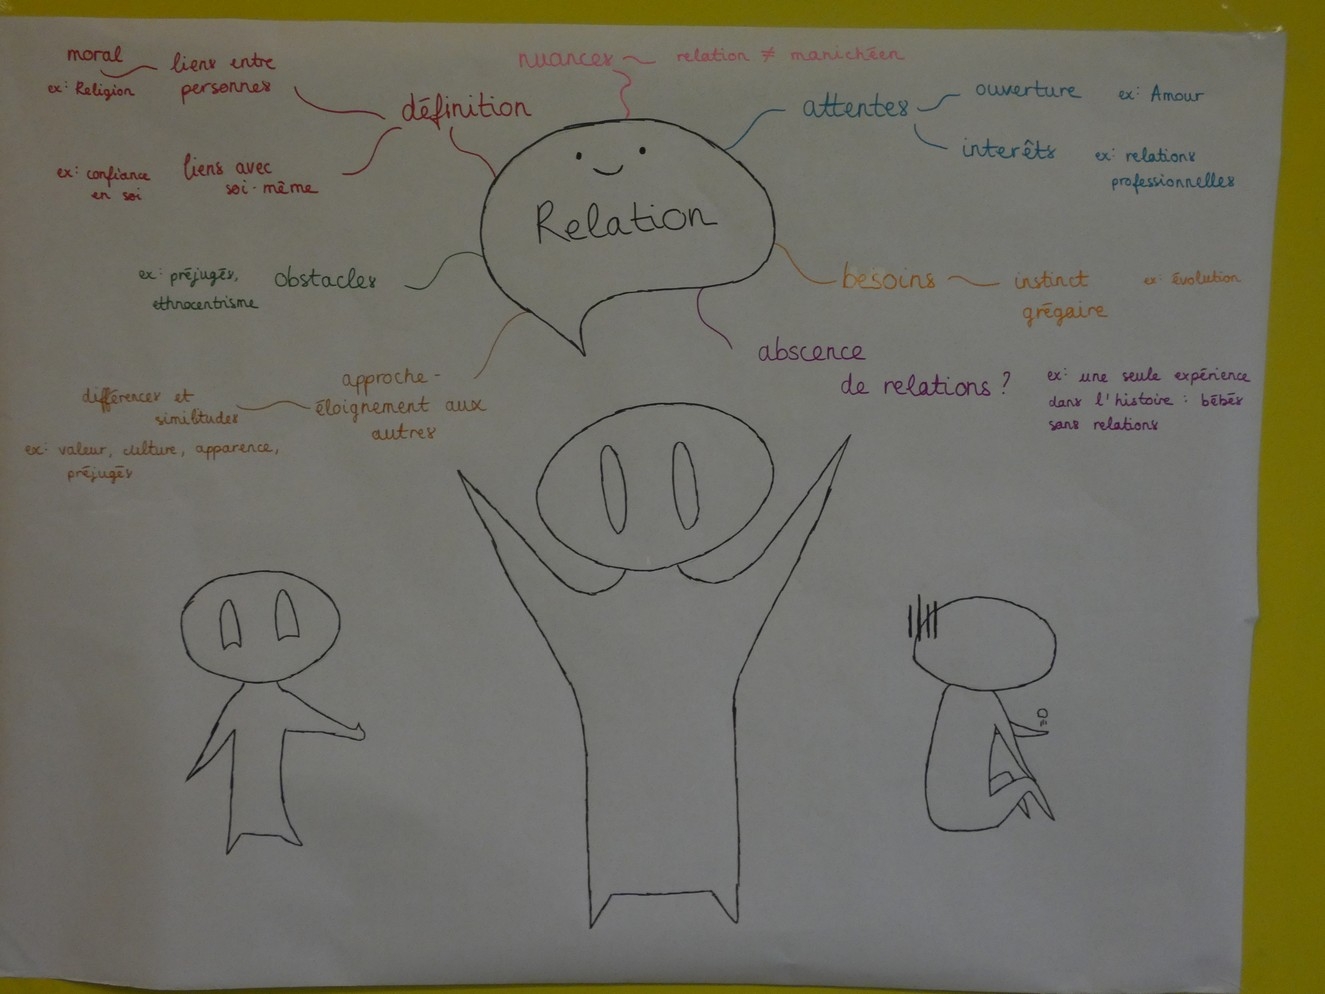 nuances
relation ≠ manichéen
moral
ex: Religion
liens entre
personnes
définition
ex: confiance
en soi
liens avec
soi-même
attentes
ouverture
ex: Amour
interêts
ex: relations
professionnelles
Relation
ex: préjugés,
ethnocentrisme
obstacles
besoins
instinct
grégaire
ex: évolution
abscence
de relations ?
ex: une seule expérience
dans l'histoire : bébés
sans relations
approche-
éloignement aux
autres
différences et
similtudes
ex: valeur, culture, apparence,
préjugés